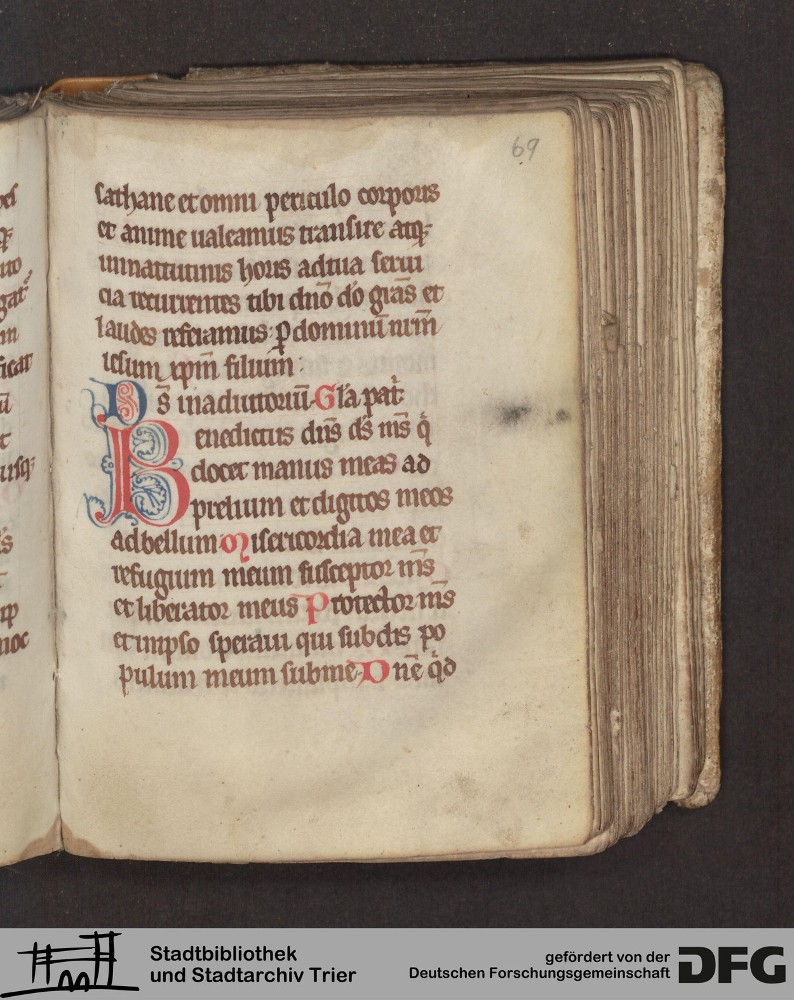 69
sathane et omni periculo corporis
et anime ualeamus transire atq;
inmatutinis horis adtua serui
cia recurrentes tibi dnō dō grās et
laudes referamus· ꝑ dominū nrm̄
iesum xpm̄ filium̄·
Ds̄ inadiutoriū· Gla̅ pat͛
Benedictus dn̄s ds̄ ms̄ qͥ
docet manus meas ad
prelium et digitos meos
adbellum Misericordia mea et
refugium meum susceptor ms̄
et liberator meus Protector ms̄
et inipso speraui qui subdis po
pulum meum subme· Dnē qͥd
Stadtbibliothek
und Stadtarchiv Trier
gefördert von der
Deutschen Forschungsgemeinschaft
DFG